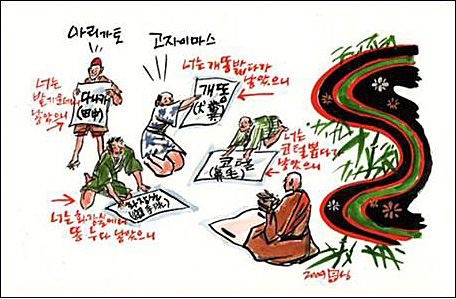 아리가토
고자이마스
너는 개똥밟다가
낳았으니
개똥
(犬糞)
너는
밭가운데서
낳았으니
다나카
(田中)
너는
코털뽑다가
낳았으니
코털
(鼻毛)
화장실
너는 화장실에서
똥 누다 낳았으니
2009